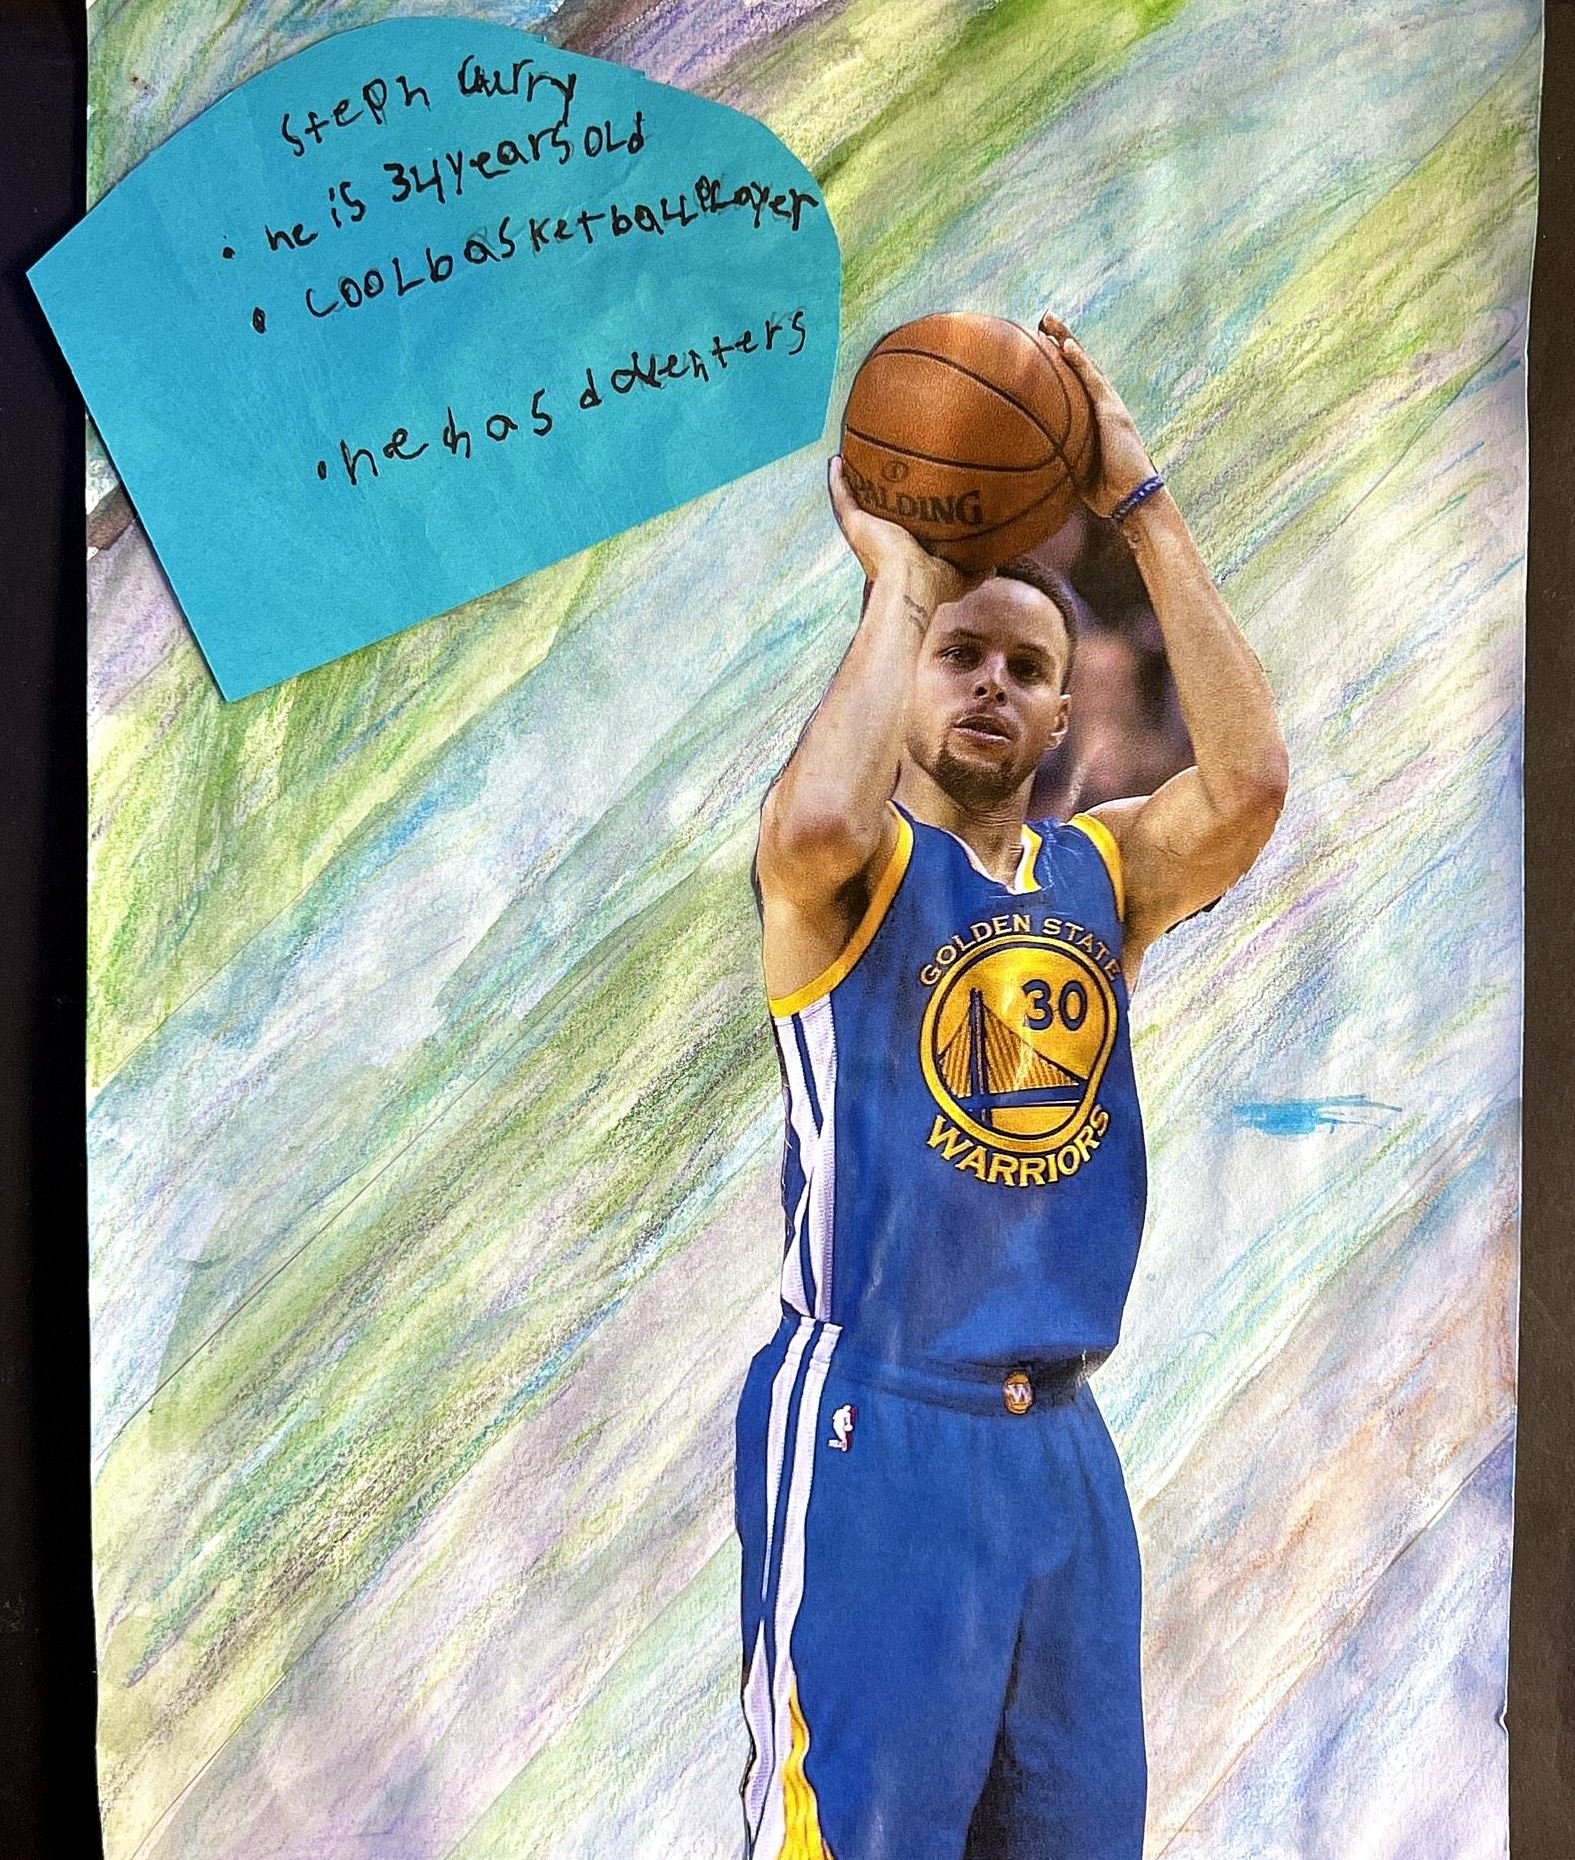 Steph Curry
• he is 34 years old
• cool basketball player
• he has dauenters
SPALDING
GOLDEN STATE
30
WARRIORS
W